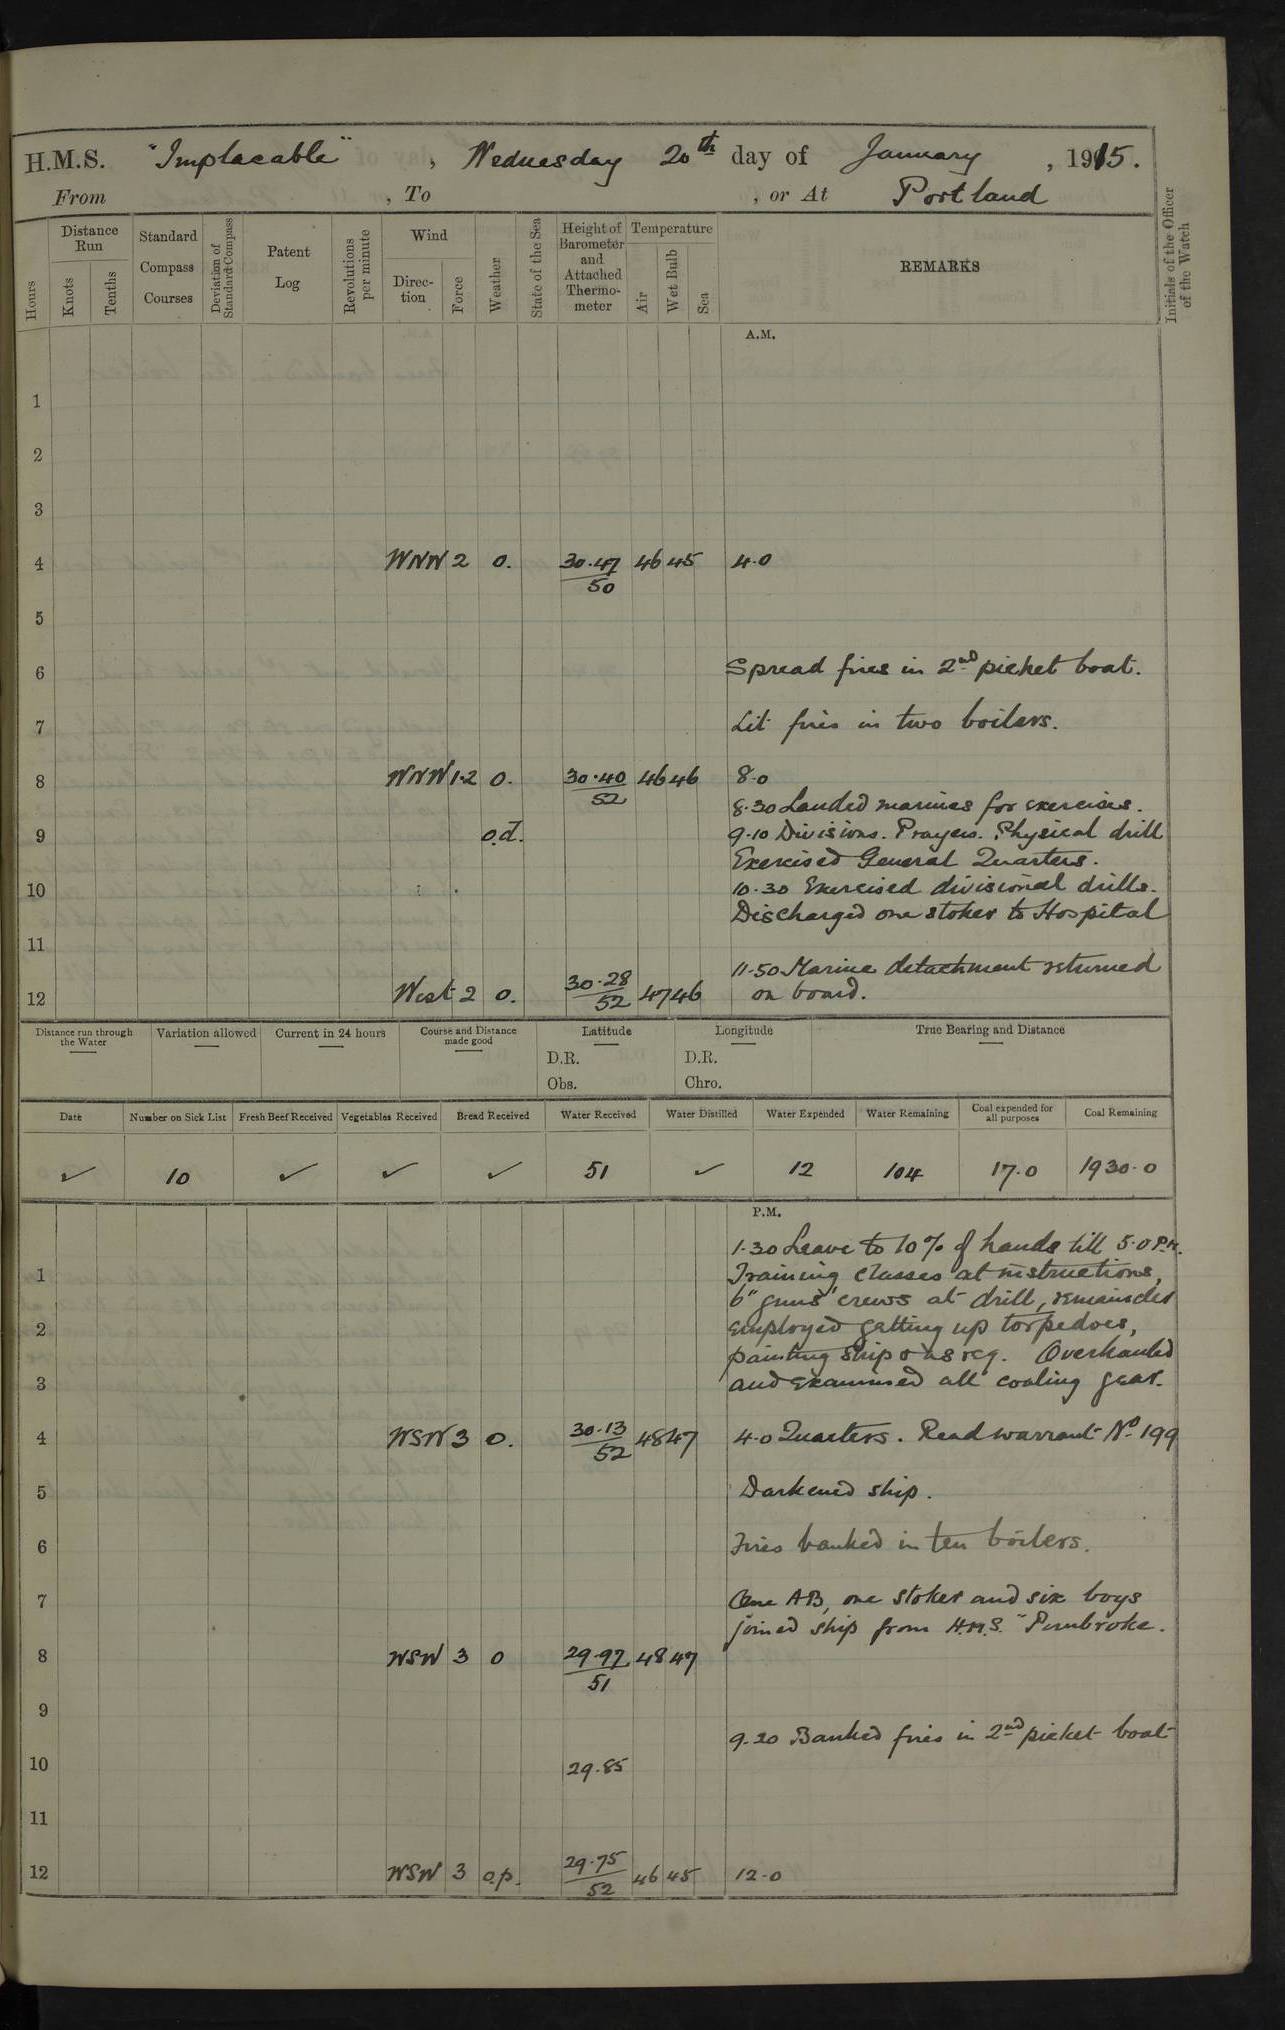 H.M.S. "Implacable", Wednesday 20th day of January, 1915.
From , To , or At Portland
Hours
Distance Run
Knots
Tenths
Standard Compass Courses
Deviation of Standard Compass
Patent Log
Revolutions per minute
Wind
Direction
Force
Weather
State of the Sea
Height of Barometer and Attached Thermometer
Temperature
Air
Wet Bulb
Sea
REMARKS
Initials of the Officer of the Watch
A.M.
1
2
3
4 WNW 2 o. 30.47/50 46 45 4.0
5
6 Spread fires in 2nd picket boat.
7 Lit fires in two boilers.
8 WNW 1.2 o. 30.40/52 46 46 8.0
8.30 Landed marines for exercises.
9 o.d. 9.10 Divisions. Prayers. Physical drill
Exercised General Quarters.
10 10.30 Exercised divisional drills.
Discharged one stoker to Hospital
11
11.50 Marine detachment returned
12 West 2 o. 30.28/52 47 46 on board.
Distance run through the Water
Variation allowed
Current in 24 hours
Course and Distance made good
Latitude
D.R.
Obs.
Longitude
D.R.
Chro.
True Bearing and Distance
Date Number on Sick List Fresh Beef Received Vegetables Received Bread Received Water Received Water Distilled Water Expended Water Remaining Coal expended for all purposes Coal Remaining
✓ 10 ✓ ✓ ✓ 51 ✓ 12 104 17.0 1930.0
P.M.
1.30 Leave to 10% of hands till 5.0 P.M.
1 Training classes at instructions,
6" guns' crews at drill, remainder
2 employed getting up torpedoes,
painting ship & as req. Overhauled
3 and examined all coaling gear.
4 WSW 3 o. 30.13/52 48 47 4.0 Quarters. Read warrant No 199
5 Darkened ship.
6 Fires banked in ten boilers.
7 One AB, one stoker and six boys
joined ship from H.M.S. "Pembroke.
8 WSW 3 o 29.97/51 48 47
9
9.20 Banked fires in 2nd picket boat
10 29.85
11
12 WSW 3 o.p. 29.75/52 46 45 12.0